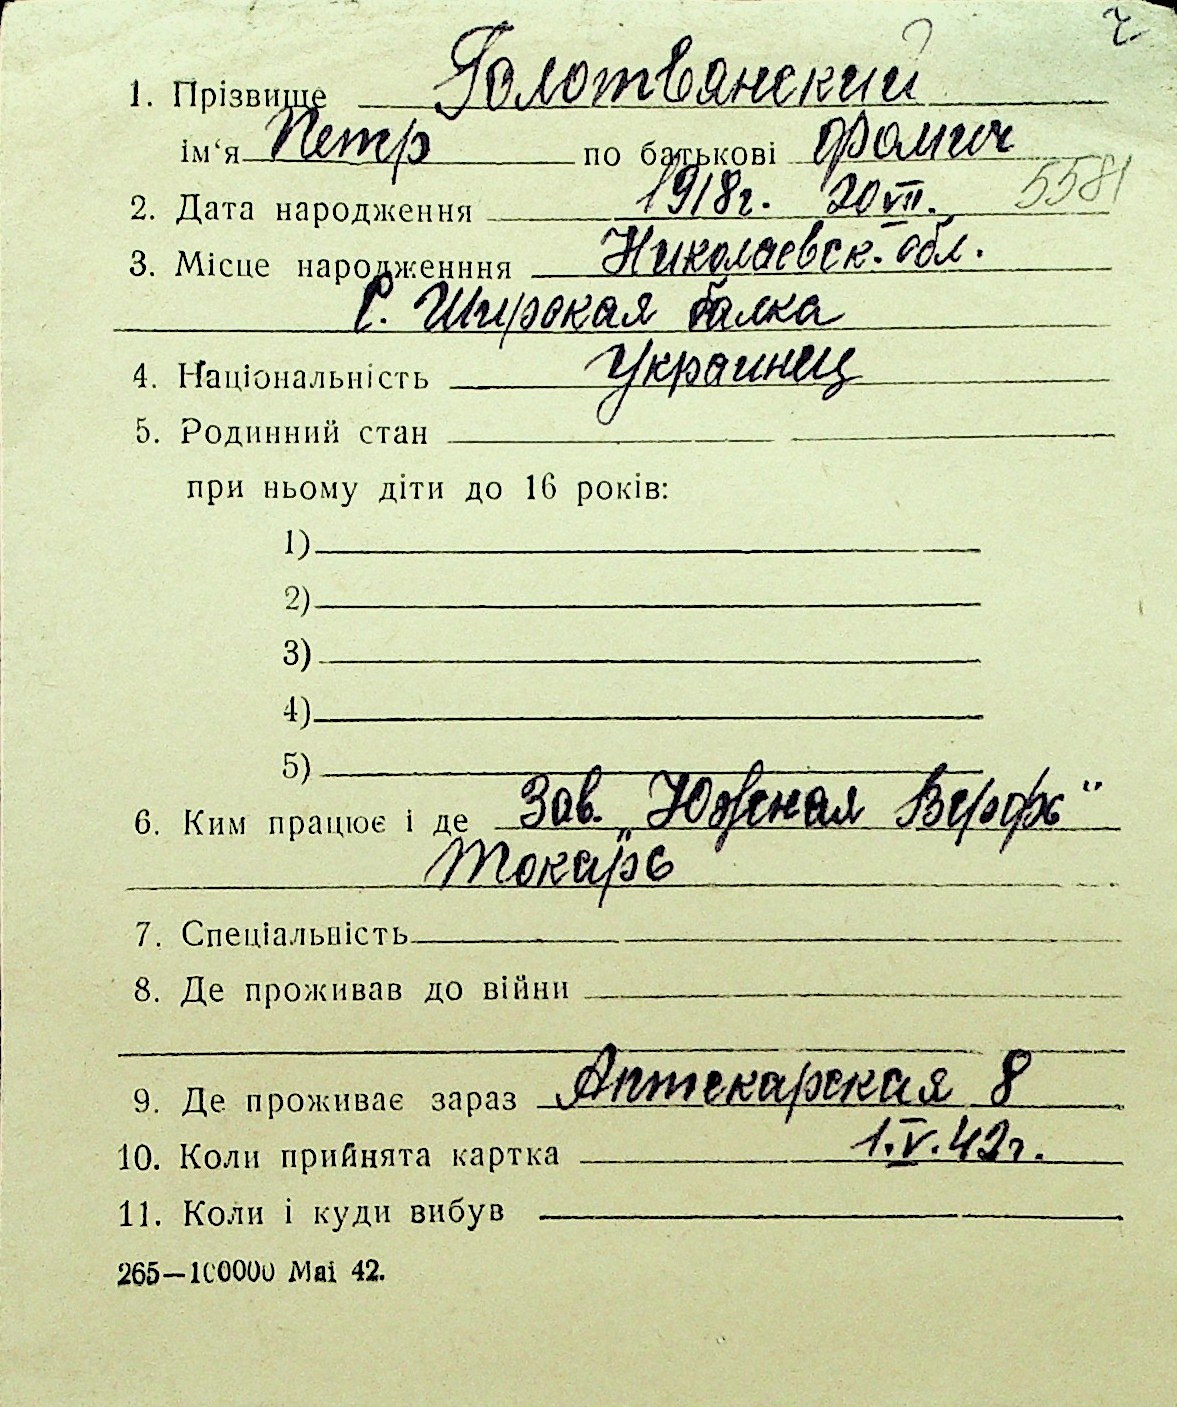 ч
1. Прізвище Голотвянский
ім‘я Петр по батькові Фомич
2. Дата народження 1918г. 20 VII. 5581
3. Місце народженння Николаевск. обл.
С. Широкая балка
4. Національність Украинец
5. Родинний стан
при ньому діти до 16 років:
1)
2)
3)
4)
5)
6. Ким працює і де Зав. „Южная Верфь“
Токарь
7. Спеціальність
8. Де проживав до війни
9. Де проживає зараз Аптекарская 8
10. Коли прийнята картка 1.V.42г.
11. Коли і куди вибув
265—100000 Mai 42.